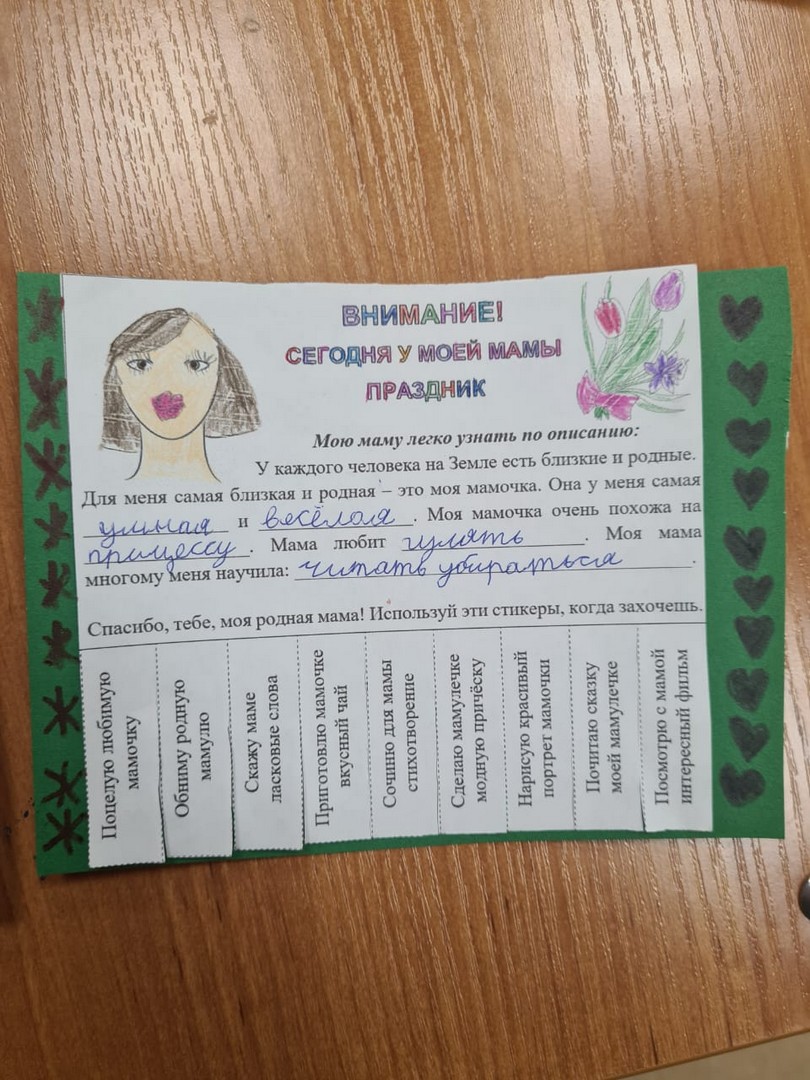 ВНИМАНИЕ!
СЕГОДНЯ У МОЕЙ МАМЫ
ПРАЗДНИК
Мою маму легко узнать по описанию:
У каждого человека на Земле есть близкие и родные.
Для меня самая близкая и родная – это моя мамочка. Она у меня самая
умная и весёлая. Моя мамочка очень похожа на
принцессу. Мама любит гулять. Моя мама
многому меня научила: читать убираться.
Спасибо, тебе, моя родная мама! Используй эти стикеры, когда захочешь.
Поцелую любимую
мамочку
Обниму родную
мамулю
Скажу маме
ласковые слова
Приготовлю мамочке
вкусный чай
Сочиню для мамы
стихотворение
Сделаю мамулечке
модную причёску
Нарисую красивый
портрет мамочки
Почитаю сказку
моей мамулечке
Посмотрю с мамой
интересный фильм